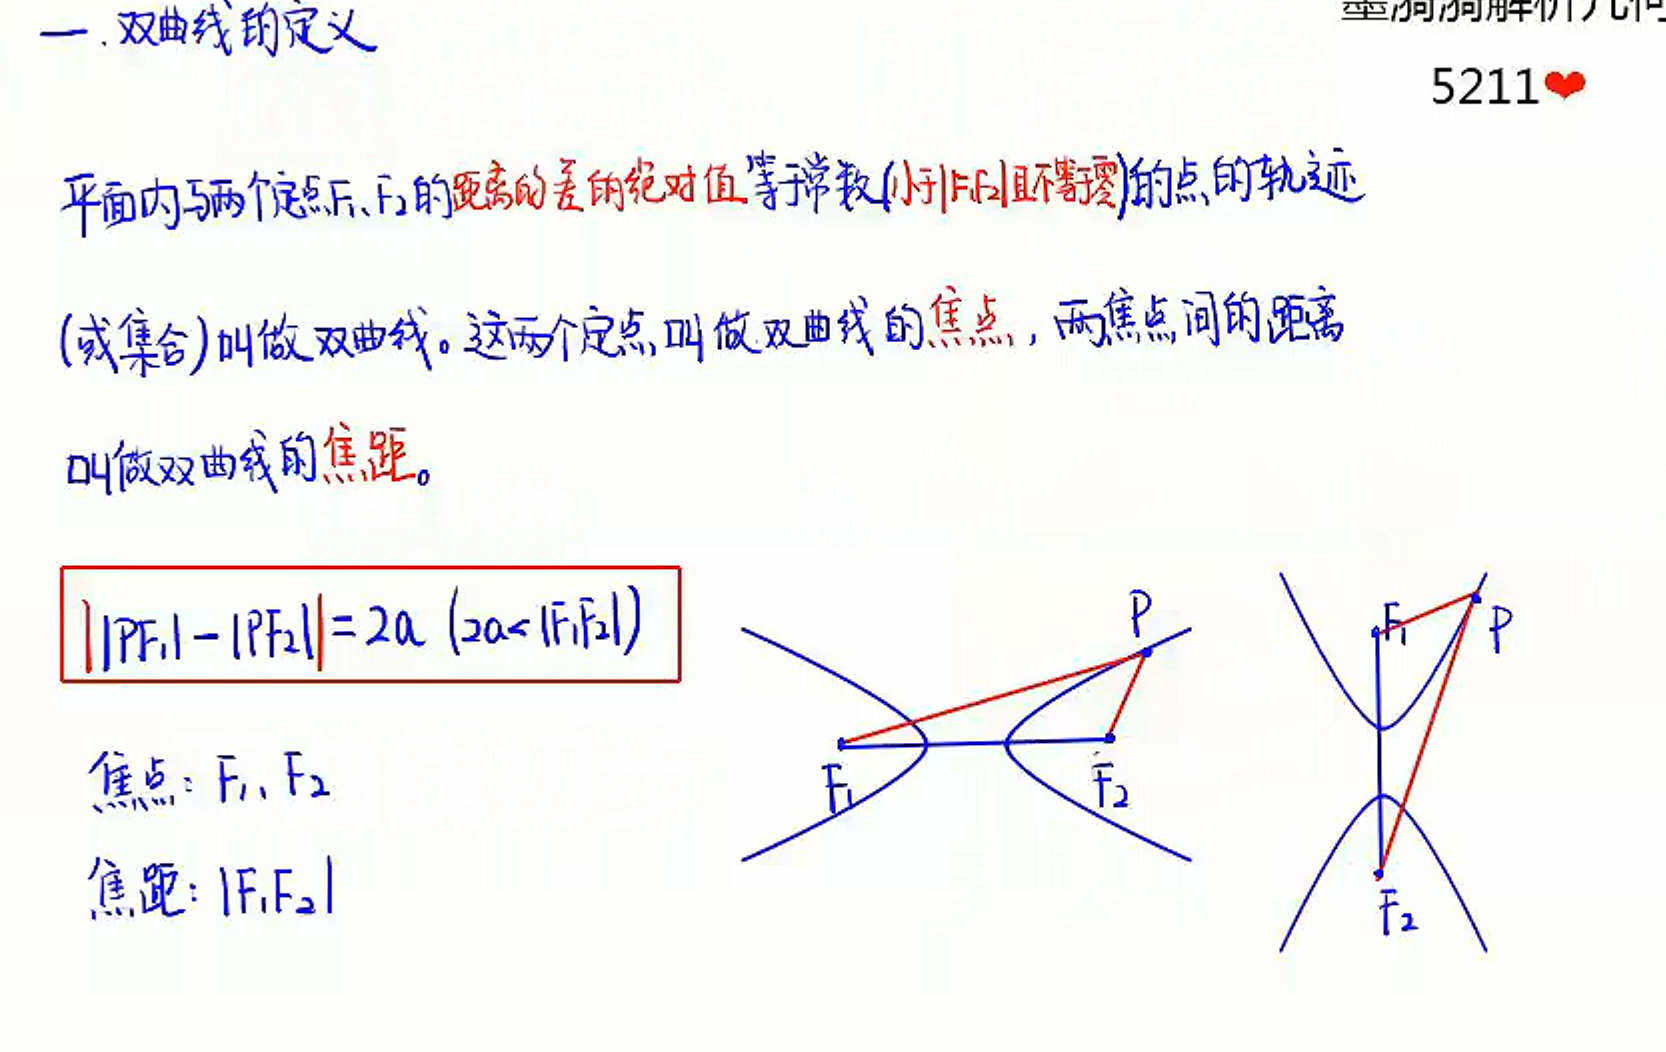 一.双曲线的定义
墨漪漪解析几何
5211❤
平面内与两个定点F₁、F₂的距离的差的绝对值等于常数(小于|F₁F₂|且不等于零)的点的轨迹
(或集合)叫做双曲线。这两个定点叫做双曲线的焦点,两焦点间的距离
叫做双曲线的焦距。
||PF₁|-|PF₂||=2a (2a<|F₁F₂|)
焦点:F₁、F₂
焦距:|F₁F₂|
P
F₁
F₂
F₁
P
F₂